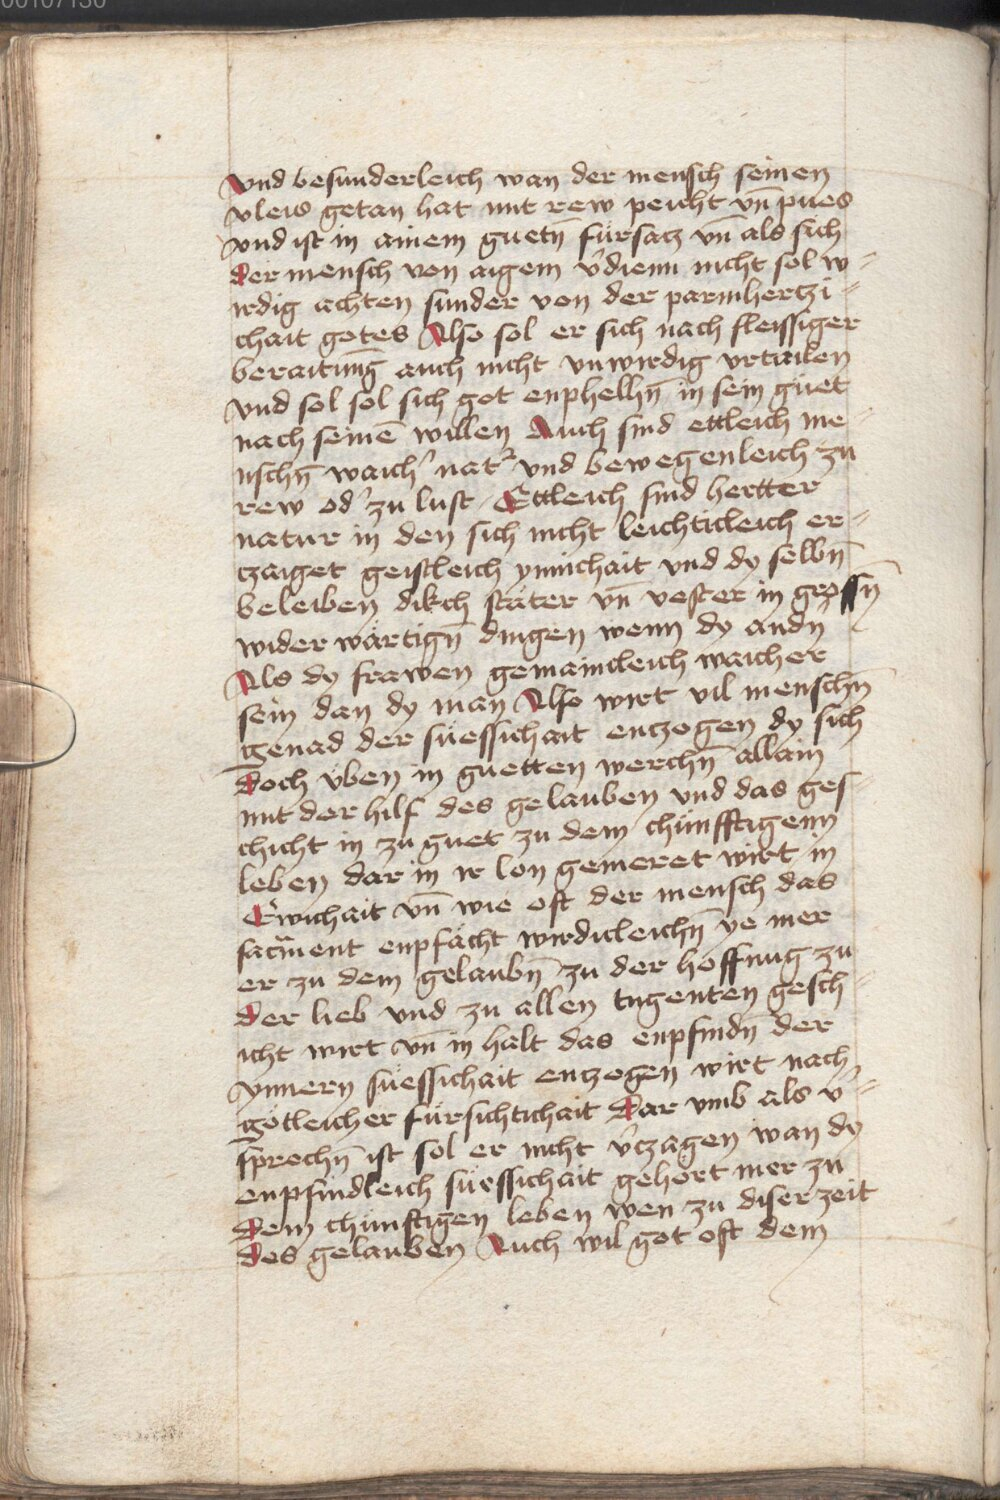 00107130
vnd besunderleich wan der mensch seinen
vleis getan hat mit rew peicht vn̄ pues
vnd ist in ainem guetn̄ fürsatz vn̄ als sich
der mensch von aigem v̓dienn nicht sol w-
irdig achten sunder von der parmhertzi-
chait gotes Also sol er sich nach fleissiger
beraitūng auch nicht vnwirdig vrtailen
vnd sol sol sich got enphelhn̄ in sein güet
nach seinē willen Auch sind ettleich me-
nschn̄ waich̓ nat᷑ vnd bewegenleich zu
rew od̓ zu lust Ettleich sind hertter
natur in den sich nicht leichticleich er-
tzaiget geistleich ynnichait vnd dy selbn̄
beleiben dikch stäter vn̄ vester in grossn̄
wider wärtign̄ dingen wenn dy andn̓
Als dy frawen gemaincleich waicher
sein dan dy man Also wirt vil menschn̄
genad der süessichait entzogen dy sich
doch vben in guetten werchn̄ allain
mit der hilf des gelauben vnd das ges-
chicht in zu guet zu dem chünfftigenn
leben dar in ir lon gemeret wirt in
Ewichait vn̄ wie oft der mensch das
sac̄ment enpfächt wirdicleichn̄ ye mer
er zu dem gelaubn̄ zu der hoffnug zu
der lieb vnd zu allen tugenten gesch-
icht wirt vn̄ in halt das enpfindn̄ der
ynnern süessichait entzogen wirt nach
götleicher fürsichtichait Dar vmb als v̓-
sprechn̄ ist sol er nicht v̓tzagen wan dy
enpfindleich süessichait gehört mer zu
dem chünftigen leben wen zu diser zeit
des gelauben Auch wil got oft dem